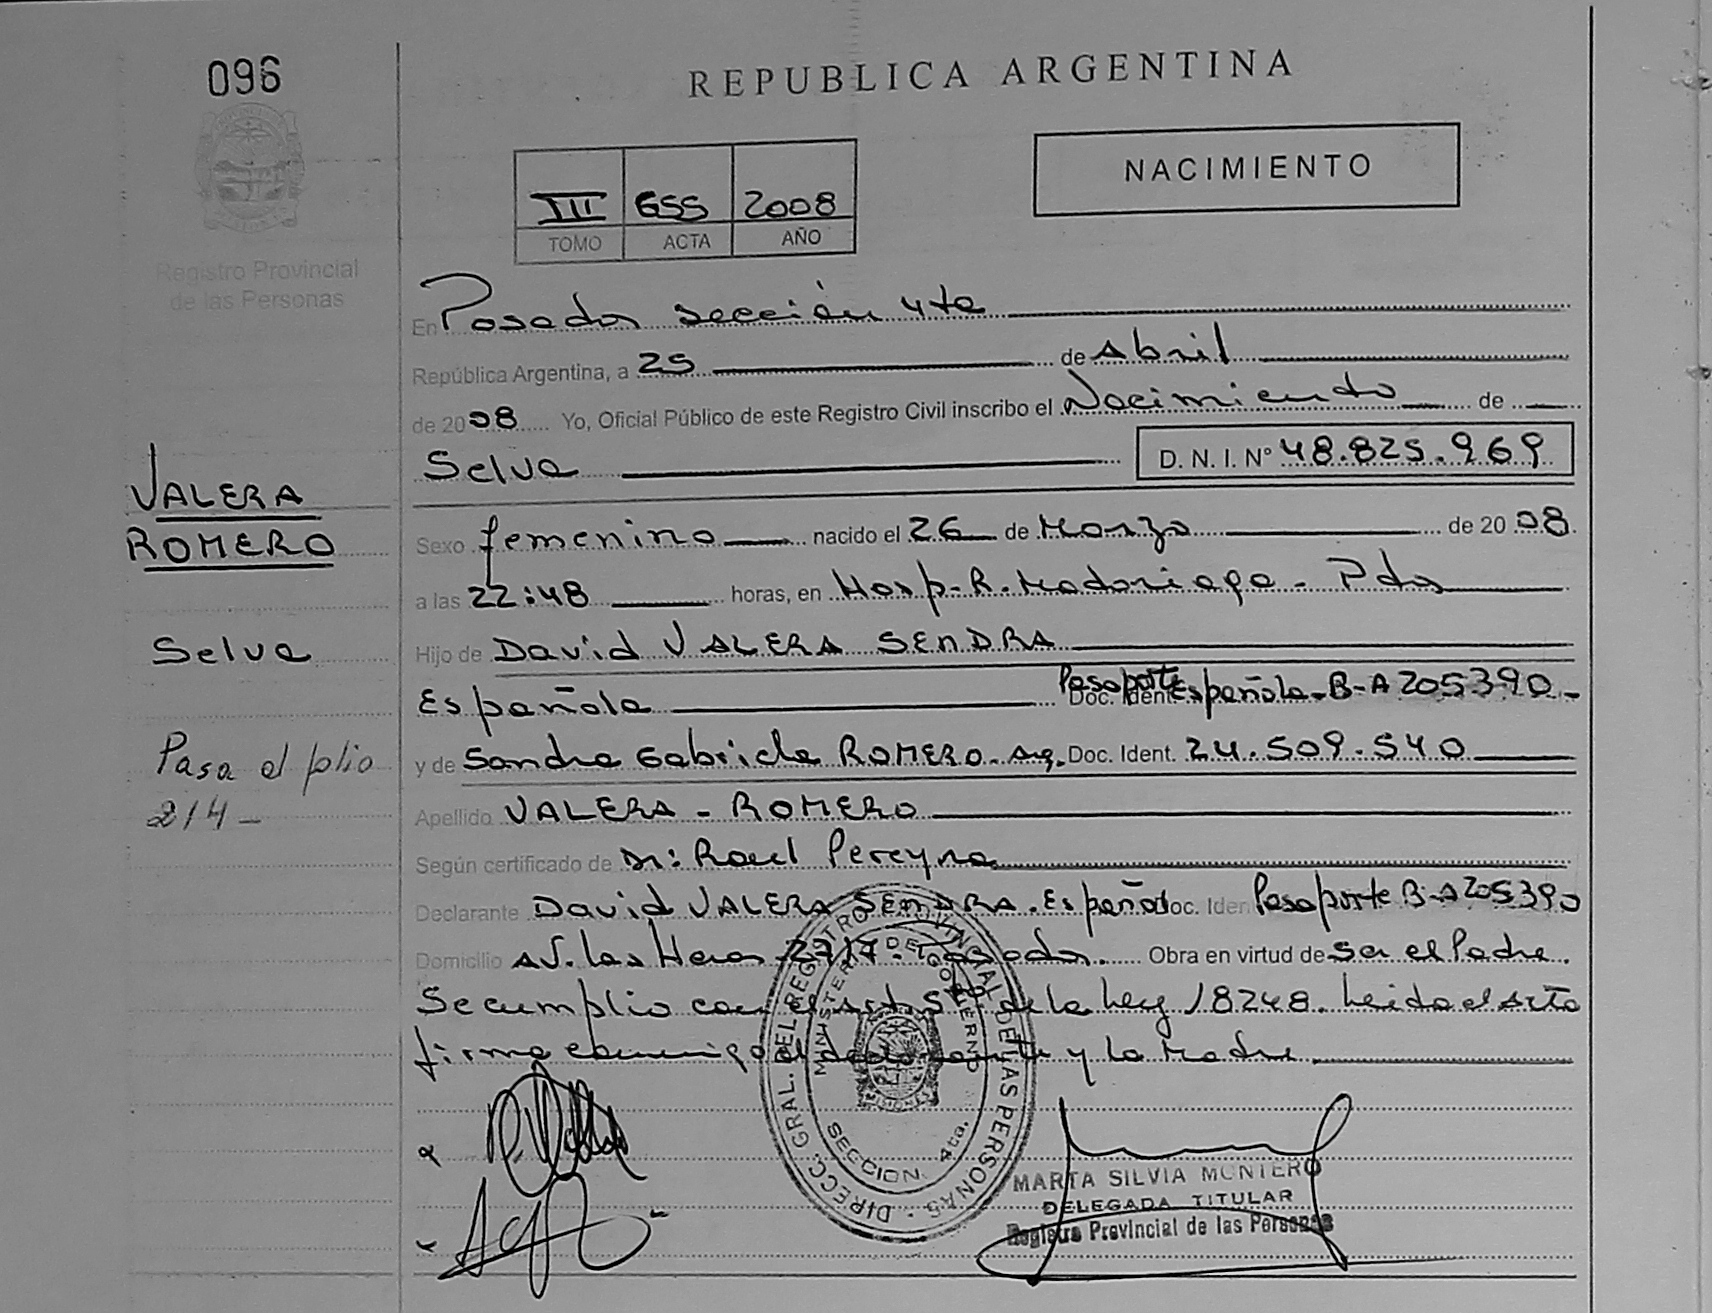 096
REPUBLICA ARGENTINA
NACIMIENTO
III 655 2008
TOMO ACTA AÑO
Registro Provincial
de las Personas
En Posadas sección 4ta
República Argentina, a 25 de Abril
de 2008 Yo, Oficial Público de este Registro Civil inscribo el Nacimiento de
Selva D. N. I. Nº 48.825.969
VALERA
ROMERO
Sexo femenino nacido el 26 de Marzo de 2008
a las 22:48 horas, en Hosp. R. Madariaga - Pdas
Selva
Hijo de David VALERA SENDRA
Española Doc. Ident. Pasaporte Española - B-A205390 -
Pasa al folio
214 -
y de Sandra Gabriela ROMERO. Arg. Doc. Ident. 24.509.540
Apellido VALERA - ROMERO
Según certificado de Dr: Raul Pereyra
Declarante David VALERA SENDRA. Español Doc. Iden Pasaporte B-A205390
Domicilio Av. Las Heras 2717 - Posadas. Obra en virtud de ser el Padre.
Se cumplio con el art. de la Ley 18248. Leida el Acta
firma conmigo el declarante y la Madre
DIRECC. GRAL. DEL REGISTRO PROVINCIAL DE LAS PERSONAS
MINISTERIO DE GOBIERNO
MISIONES
SECCION 4ta.
MARTA SILVIA MONTERO
DELEGADA TITULAR
Registro Provincial de las Personas